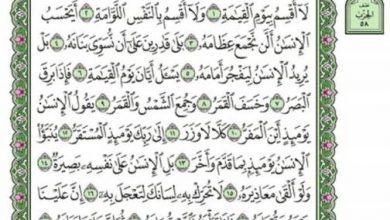 الحزب
٥٨
لَآ أُقْسِمُ بِيَوْمِ ٱلْقِيَٰمَةِ ١ وَلَآ أُقْسِمُ بِٱلنَّفْسِ ٱللَّوَّامَةِ ٢ أَيَحْسَبُ
ٱلْإِنسَٰنُ أَلَّن نَّجْمَعَ عِظَامَهُۥ ٣ بَلَىٰ قَٰدِرِينَ عَلَىٰٓ أَن نُّسَوِّىَ بَنَانَهُۥ ٤ بَلْ
يُرِيدُ ٱلْإِنسَٰنُ لِيَفْجُرَ أَمَامَهُۥ ٥ يَسْـَٔلُ أَيَّانَ يَوْمُ ٱلْقِيَٰمَةِ ٦ فَإِذَا بَرِقَ
ٱلْبَصَرُ ٧ وَخَسَفَ ٱلْقَمَرُ ٨ وَجُمِعَ ٱلشَّمْسُ وَٱلْقَمَرُ ٩ يَقُولُ ٱلْإِنسَٰنُ
يَوْمَئِذٍ أَيْنَ ٱلْمَفَرُّ ١٠ كَلَّا لَا وَزَرَ ١١ إِلَىٰ رَبِّكَ يَوْمَئِذٍ ٱلْمُسْتَقَرُّ ١٢ يُنَبَّؤُا۟
ٱلْإِنسَٰنُ يَوْمَئِذٍۭ بِمَا قَدَّمَ وَأَخَّرَ ١٣ بَلِ ٱلْإِنسَٰنُ عَلَىٰ نَفْسِهِۦ بَصِيرَةٌ ١٤
وَلَوْ أَلْقَىٰ مَعَاذِيرَهُۥ ١٥ لَا تُحَرِّكْ بِهِۦ لِسَانَكَ لِتَعْجَلَ بِهِۦٓ ١٦ إِنَّ عَلَيْنَا